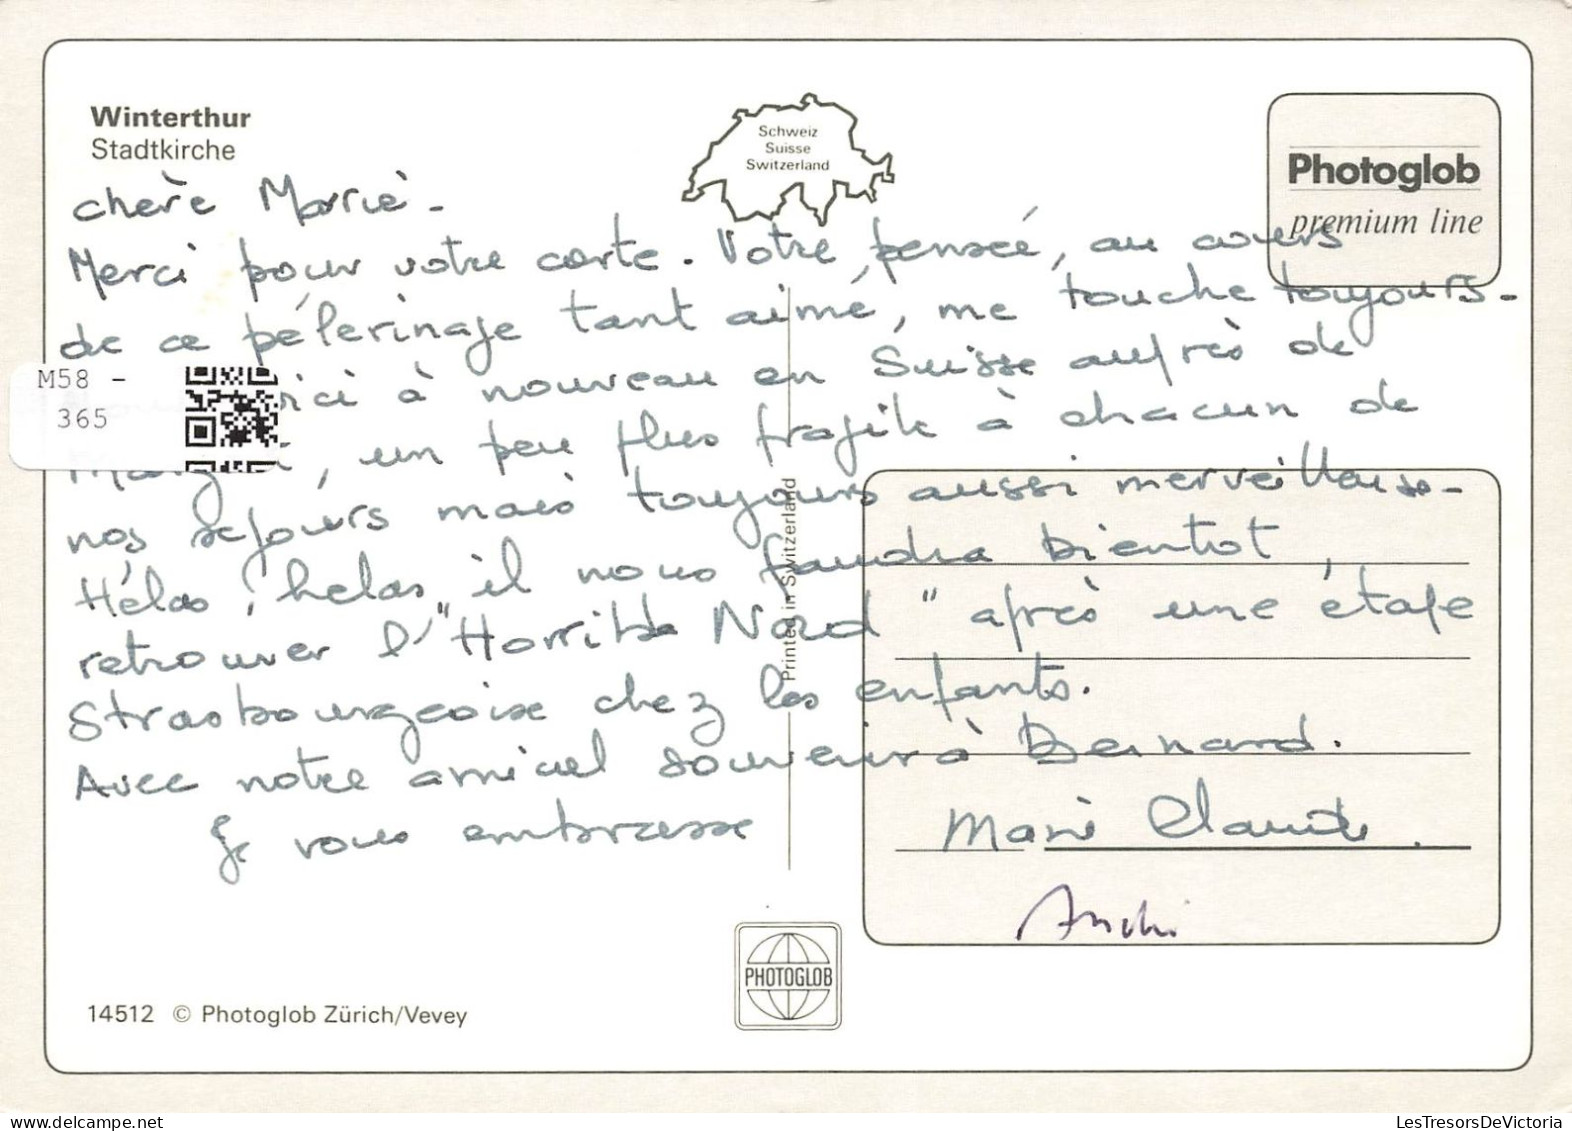 Winterthur
Stadtkirche
Schweiz
Suisse
Switzerland
Photoglob
premium line
chère Marie -
Merci pour votre carte. Votre pensée, au cours
de ce pélerinage tant aimé, me touche toujours -
ici à nouveau en Suisse auprès de
M58 -
365
un peu plus fragile à chacun de
nos séjours mais toujours aussi merveilleuse -
Hélas, hélas, il nous faudra bientot,
retrouver l'"Horrible Nord" après une étape
Strasbourgeoise chez les enfants.
Avec notre amical souvenir à Bernard.
Je vous embrasse
Marie Claude.
Printed in Switzerland
PHOTOGLOB
14512 © Photoglob Zürich/Vevey
LesTresorsDeVictoria.com